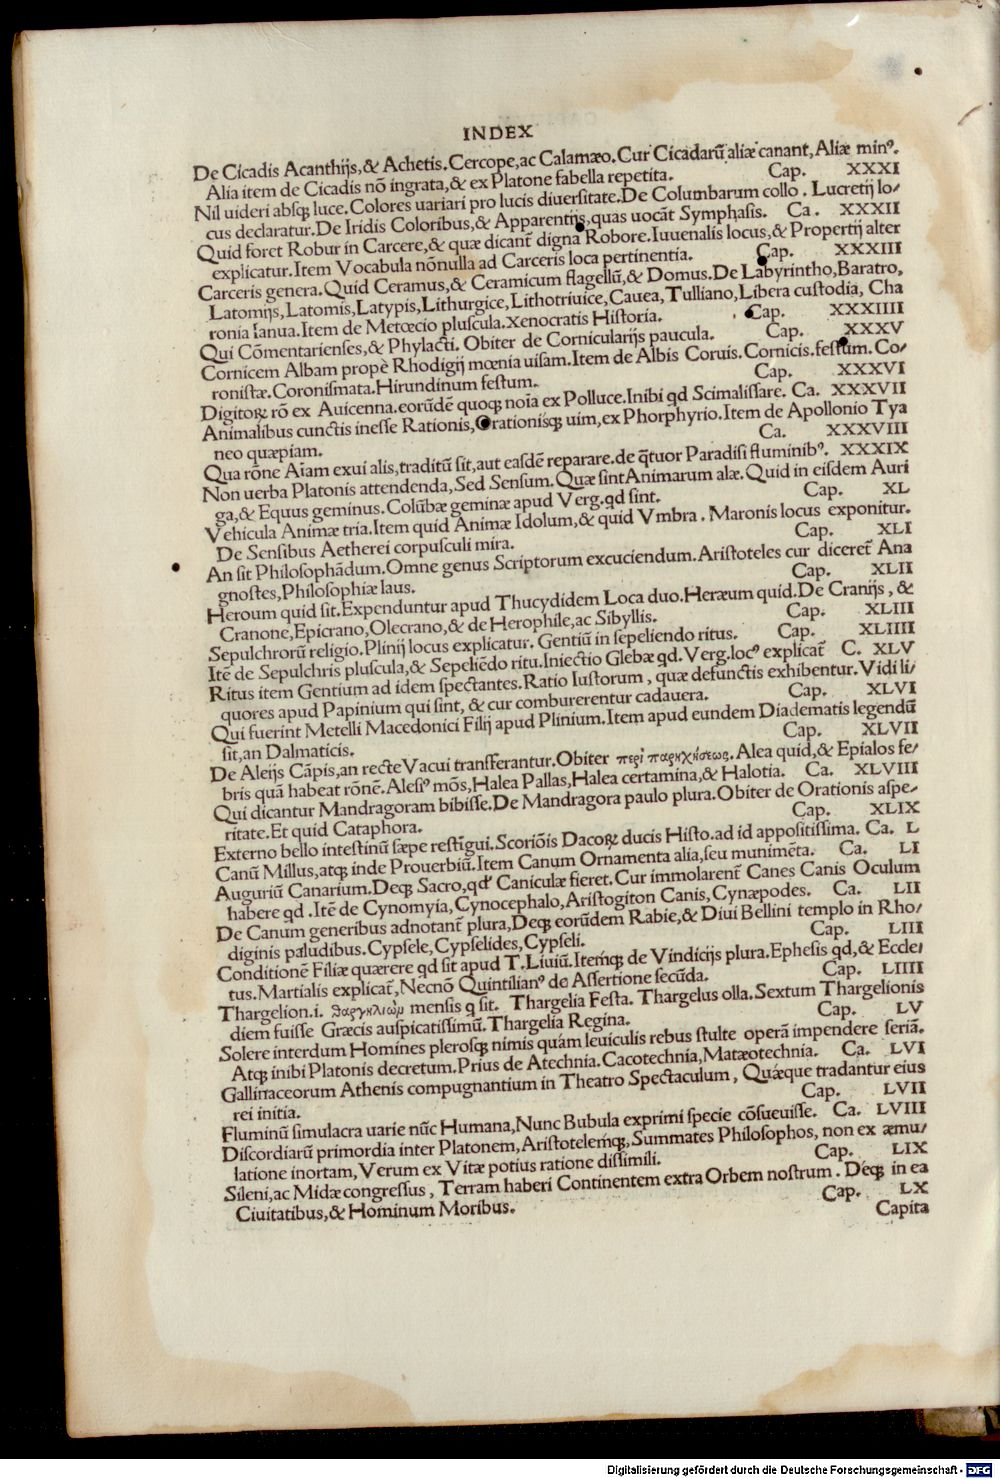 INDEX
De Cicadis Acanthijs,& Achetis.Cercope,ac Calamæo.Cur Cicadarũ aliæ canant,Aliæ minꝰ.
Alia item de Cicadis nõ ingrata,& ex Platone fabella repetita. Cap. XXXI
Nil uideri absqꝫ luce.Colores uariari pro lucis diuersitate.De Columbarum collo . Lucretij lo/
cus declaratur.De Iridis Coloribus,& Apparentijs,quas uocãt Symphasis. Ca. XXXII
Quid foret Robur in Carcere,& quæ dicant̃ digna Robore.Iuuenalis locus,& Propertij alter
explicatur.Item Vocabula nõnulla ad Carceris loca pertinentia. Cap. XXXIII
Carceris genera.Quid Ceramus,& Ceramicum flagellũ,& Domus.De Labyrintho,Baratro,
Latomijs,Latomis,Latypis,Lithurgice,Lithotriuice,Cauea,Tulliano,Libera custodia, Cha
ronia Ianua.Item de Metœcio pluscula.Xenocratis Historia. Cap. XXXIIII
Qui Cõmentarienses,& Phylacti. Obiter de Cornicularijs paucula. Cap. XXXV
Cornicem Albam propè Rhodigij mœnia uisam.Item de Albis Coruis.Cornicis.festum.Co/
ronistæ.Coronismata.Hirundinum festum. Cap. XXXVI
Digitoꝝ rõ ex Auicenna.eorũdẽ quoqꝫ noĩa ex Polluce.Inibi qd Scimalissare. Ca. XXXVII
Animalibus cunctis inesse Rationis,Orationisqꝫ uim,ex Phorphyrio.Item de Apollonio Tya
neo quæpiam. Ca. XXXVIII
Qua rõne Aĩam exui alis,traditũ sit,aut easdẽ reparare.de q̃tuor Paradisi fluminibꝰ. XXXIX
Non uerba Platonis attendenda,Sed Sensum.Quæ sint Animarum alæ.Quid in eisdem Auri
ga,& Equus geminus.Colũbæ geminæ apud Verg.qd sint. Cap. XL
Vehicula Animæ tria.Item quid Animæ Idolum,& quid Vmbra . Maronis locus exponitur.
De Sensibus Aetherei corpusculi mira. Cap. XLI
An sit Philosophãdum.Omne genus Scriptorum excuciendum.Aristoteles cur diceret̃ Ana
gnostes,Philosophiæ laus. Cap. XLII
Heroum quid sit.Expenduntur apud Thucydidem Loca duo.Heræum quid.De Cranijs, &
Cranone,Epicrano,Olecrano,& de Herophile,ac Sibyllis. Cap. XLIII
Sepulchrorũ religio.Plinij locus explicatur. Gentiũ in sepeliendo ritus. Cap. XLIIII
Itẽ de Sepulchris pluscula,& Sepeliẽdo ritu.Iniectio Glebæ qd.Verg.locꝰ explicat̃ C. XLV
Ritus item Gentium ad idem spectantes.Ratio Iustorum , quæ defunctis exhibentur.Vidi li/
quores apud Papinium qui sint, & cur comburerentur cadauera. Cap. XLVI
Qui fuerint Metelli Macedonici Filij apud Plinium.Item apud eundem Diadematis legendũ
sit,an Dalmaticis. Cap. XLVII
De Aleijs Cãpis,an recte Vacui transferantur.Obiter περὶ παρηχήσεως.Alea quid,& Epialos fe/
bris quã habeat rõnẽ.Alesꝰ mõs,Halea Pallas,Halea certamina,& Halotia. Ca. XLVIII
Qui dicantur Mandragoram bibisse.De Mandragora paulo plura.Obiter de Orationis aspe/
ritate.Et quid Cataphora. Cap. XLIX
Externo bello intestinũ sæpe resti̅gui.Scoriõis Dacoꝝ ducis Histo.ad id appositissima. Ca. L
Canũ Millus,atqꝫ inde Prouerbiũ.Item Canum Ornamenta alia,seu munimẽta. Ca. LI
Auguriũ Canarium.Deqꝫ Sacro,qd' Caniculæ fieret.Cur immolarent̃ Canes Canis Oculum
habere qd .Itẽ de Cynomyia,Cynocephalo,Aristogiton Canis,Cynæpodes. Ca. LII
De Canum generibus adnotant̃ plura,Deqꝫ eorũdem Rabie,& Diui Bellini templo in Rho/
diginis paludibus.Cypsele,Cypselides,Cypseli. Cap. LIII
Conditionẽ Filiæ quærere qd sit apud T.Liuiũ.Item̃qꝫ de Vindicijs plura.Ephesis qd,& Eccle/
tus.Martialis explicat̃,Necnõ Quintilianꝰ de Assertione secũda. Cap. LIIII
Thargelion.i. θαργηλιὼμ mensis q sit. Thargelia Festa. Thargelus olla.Sextum Thargelionis
diem fuisse Græcis auspicatissimũ.Thargelia Regina. Cap. LV
Solere interdum Homines plerosqꝫ nimis quám leuiculis rebus stulte operã impendere seriã.
Atqꝫ inibi Platonis decretum.Prius de Atechnia.Cacotechnia,Matæotechnia. Ca. LVI
Gallinaceorum Athenis compugnantium in Theatro Spectaculum , Quǽque tradantur eius
rei initia. Cap. LVII
Fluminũ simulacra uarie nũc Humana,Nunc Bubula exprimi specie cõsueuisse. Ca. LVIII
Discordiarũ primordia inter Platonem,Aristotelem̃qꝫ,Summates Philosophos, non ex æmu/
latione inortam,Verum ex Vitæ potius ratione dissimili. Cap. LIX
Sileni,ac Midæ congressus , Terram haberi Continentem extra Orbem nostrum . Deqꝫ in ea
Ciuitatibus,& Hominum Moribus. Cap. LX
Capita
Digitalisierung gefördert durch die Deutsche Forschungsgemeinschaft - DFG